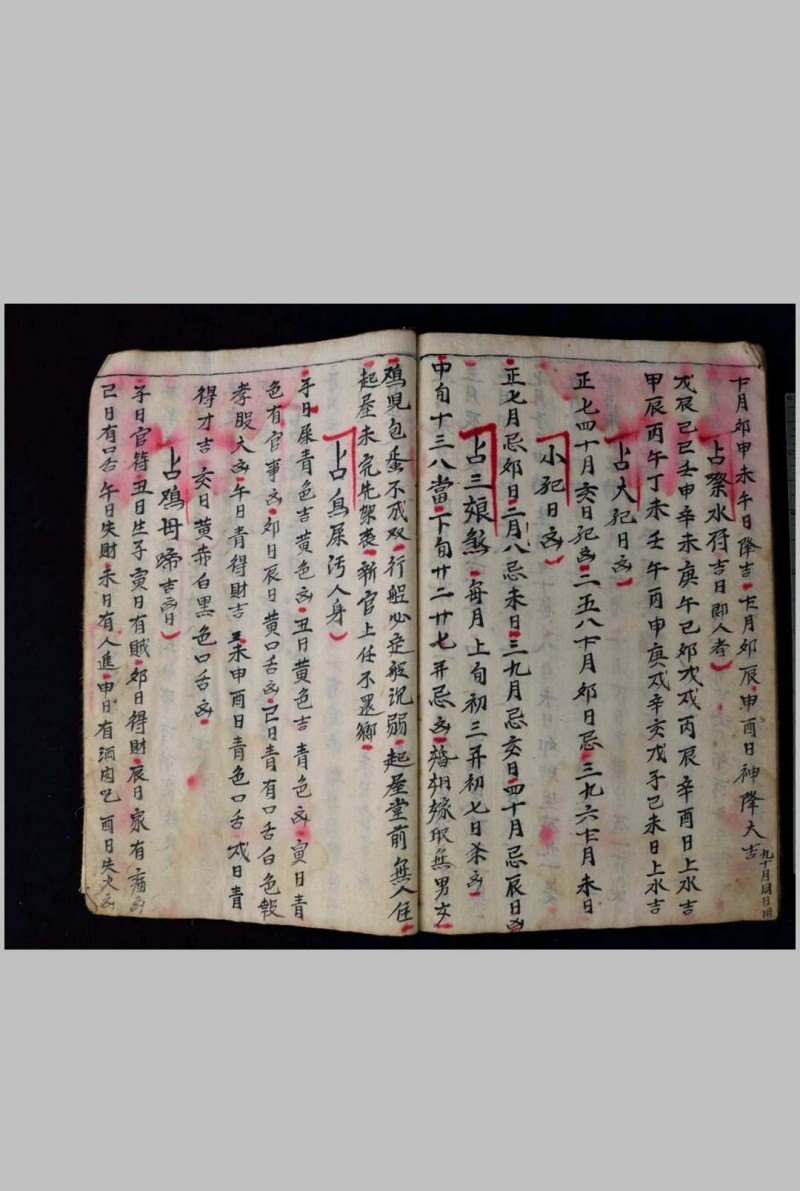 十月卯申未午日降吉十二月卯辰申酉日神降大吉
九十月同日用
占祭水符吉日即人者
戊辰己巳壬申辛未庚午己卯戊戌丙辰辛酉日上水吉
甲辰丙午丁未壬午丙申庚戌辛亥戊子己未日上水吉
占大犯日凶
正七四十月亥日犯凶二五八十月卯日忌三九六十二月未日
小犯日凶
正七月忌卯日二月八忌未日三九月忌亥日四十月忌辰日凶
占三娘煞每月上旬初三并初七日杀凶
中旬十三八當下旬廿二廿七并忌凶婚姻嫁取無男女
鸡児包蛋不成双行船必定船沉弱起屋堂前無人住
起屋未完先架丧新官上任不還鄉
占鳥屎污人身
子日屎青色吉黄色凶丑日黄色吉青色凶寅日青
色有官事凶卯日辰日黄口舌凶己日青有口舌白色報
孝服大凶午日青得財吉未申酉日青色口舌戌日青
得才吉亥日黄赤白黑色口舌凶
占鸡母啼吉凶日
子日官符丑日生子寅日有賊卯日得財辰日家有病凶
己日有口舌午日失財未日有人進申日有酒肉吃酉日失火凶